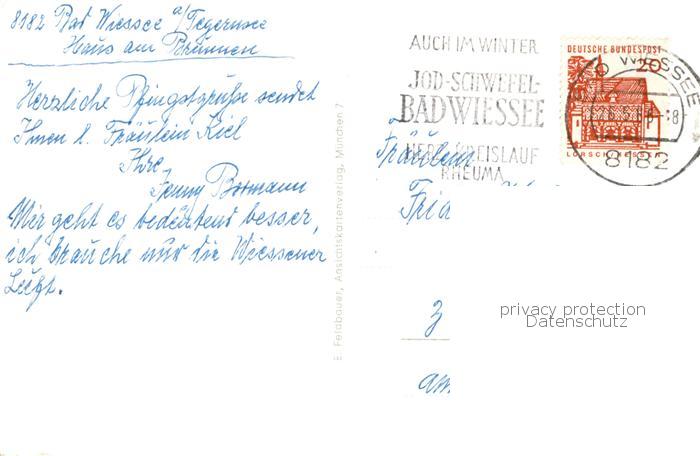 8182 Bad Wiessee a/Tegernsee
Haus am Brunnen
Herzliche Pfingstgrüße sendet
Ihnen l. Fräulein Kiel
Ihre
Jenny Bormann
Mir geht es bedeutend besser,
ich brauche nur die Wiesseer
Luft.
E. Felabauer, Ansichtskartenverlag, München 7
AUCH IM WINTER
JOD-SCHWEFEL-
BAD WIESSEE
HERZ KREISLAUF
RHEUMA
DEUTSCHE BUNDESPOST
20
LORSCH HESSEN
WIESSEE
8182
Fräulein
privacy protection
Datenschutz